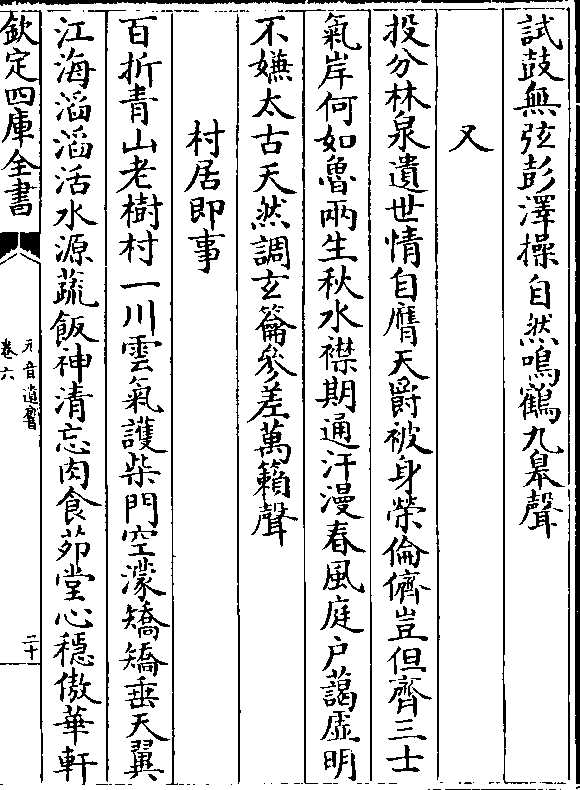 試鼓無弦彭澤操自然鳴鶴九臯聲
又
投分林泉遺世情自膺天爵被身榮倫儕豈但齊三士
氣岸何如魯兩生秋水襟期通汗漫春風庭户藹虛明
不嫌太古天然調玄籥參差萬籟聲
村居即事
百折青山老樹村一川雲氣護柴門空濛矯矯垂天翼
江海滔滔活水源蔬飯神清忘肉食茆堂心穩傲華軒
欽定四庫全書
元音遺響
卷六
二十